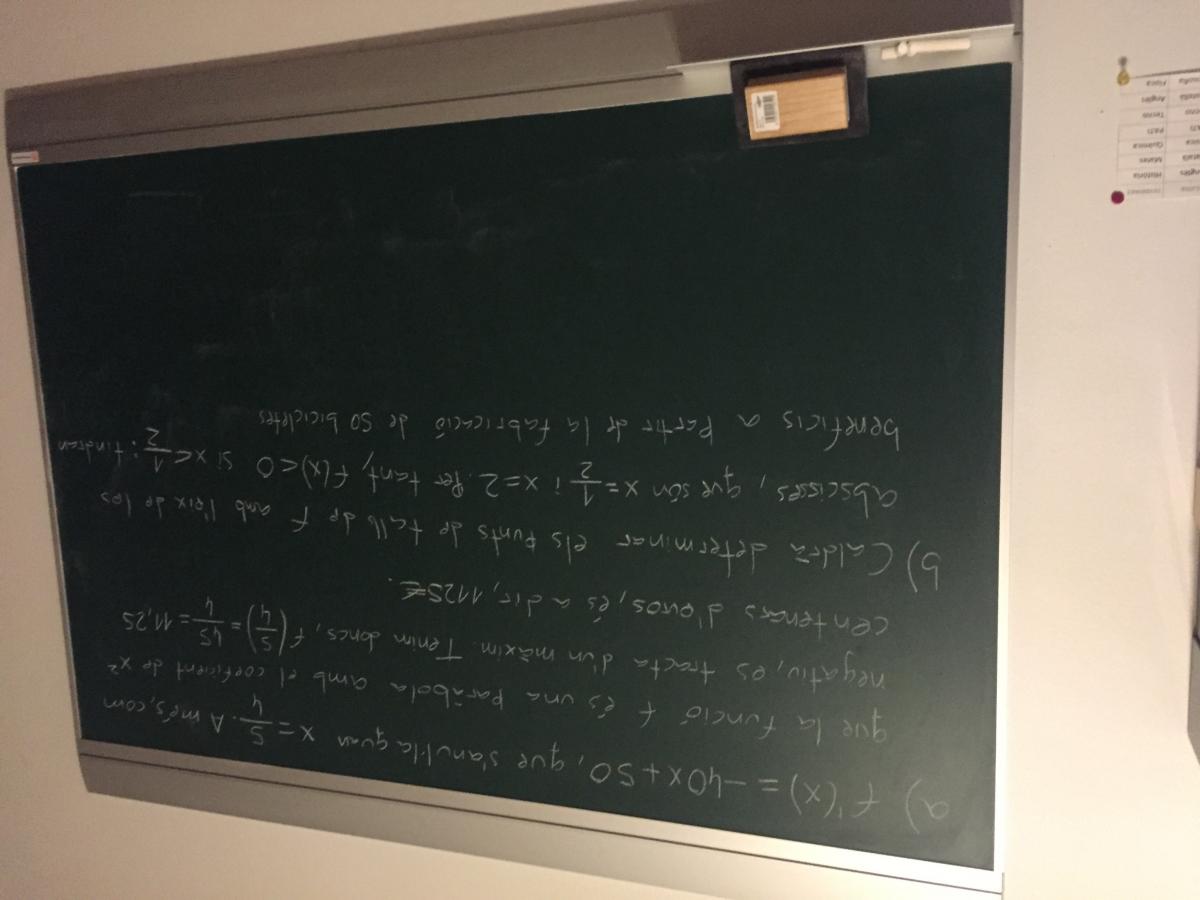 a) f'(x) = -40x + 50, que s'anul·la quan x = 5/4. A més, com
que la funció f és una paràbola amb el coeficient de x²
negatiu, es tracta d'un màxim. Tenim doncs, f(5/4) = 45/4 = 11,25
centenars d'euros, és a dir, 1125€.
b) Caldrà determinar els punts de tall de f amb l'eix de les
abscisses, que són x = 1/2 i x = 2. Per tant, f(x) < 0 si x < 1/2: tindran
beneficis a partir de la fabricació de 50 bicicletes
Història
Mates
Química
PATI
Tecno
Anglès
Física